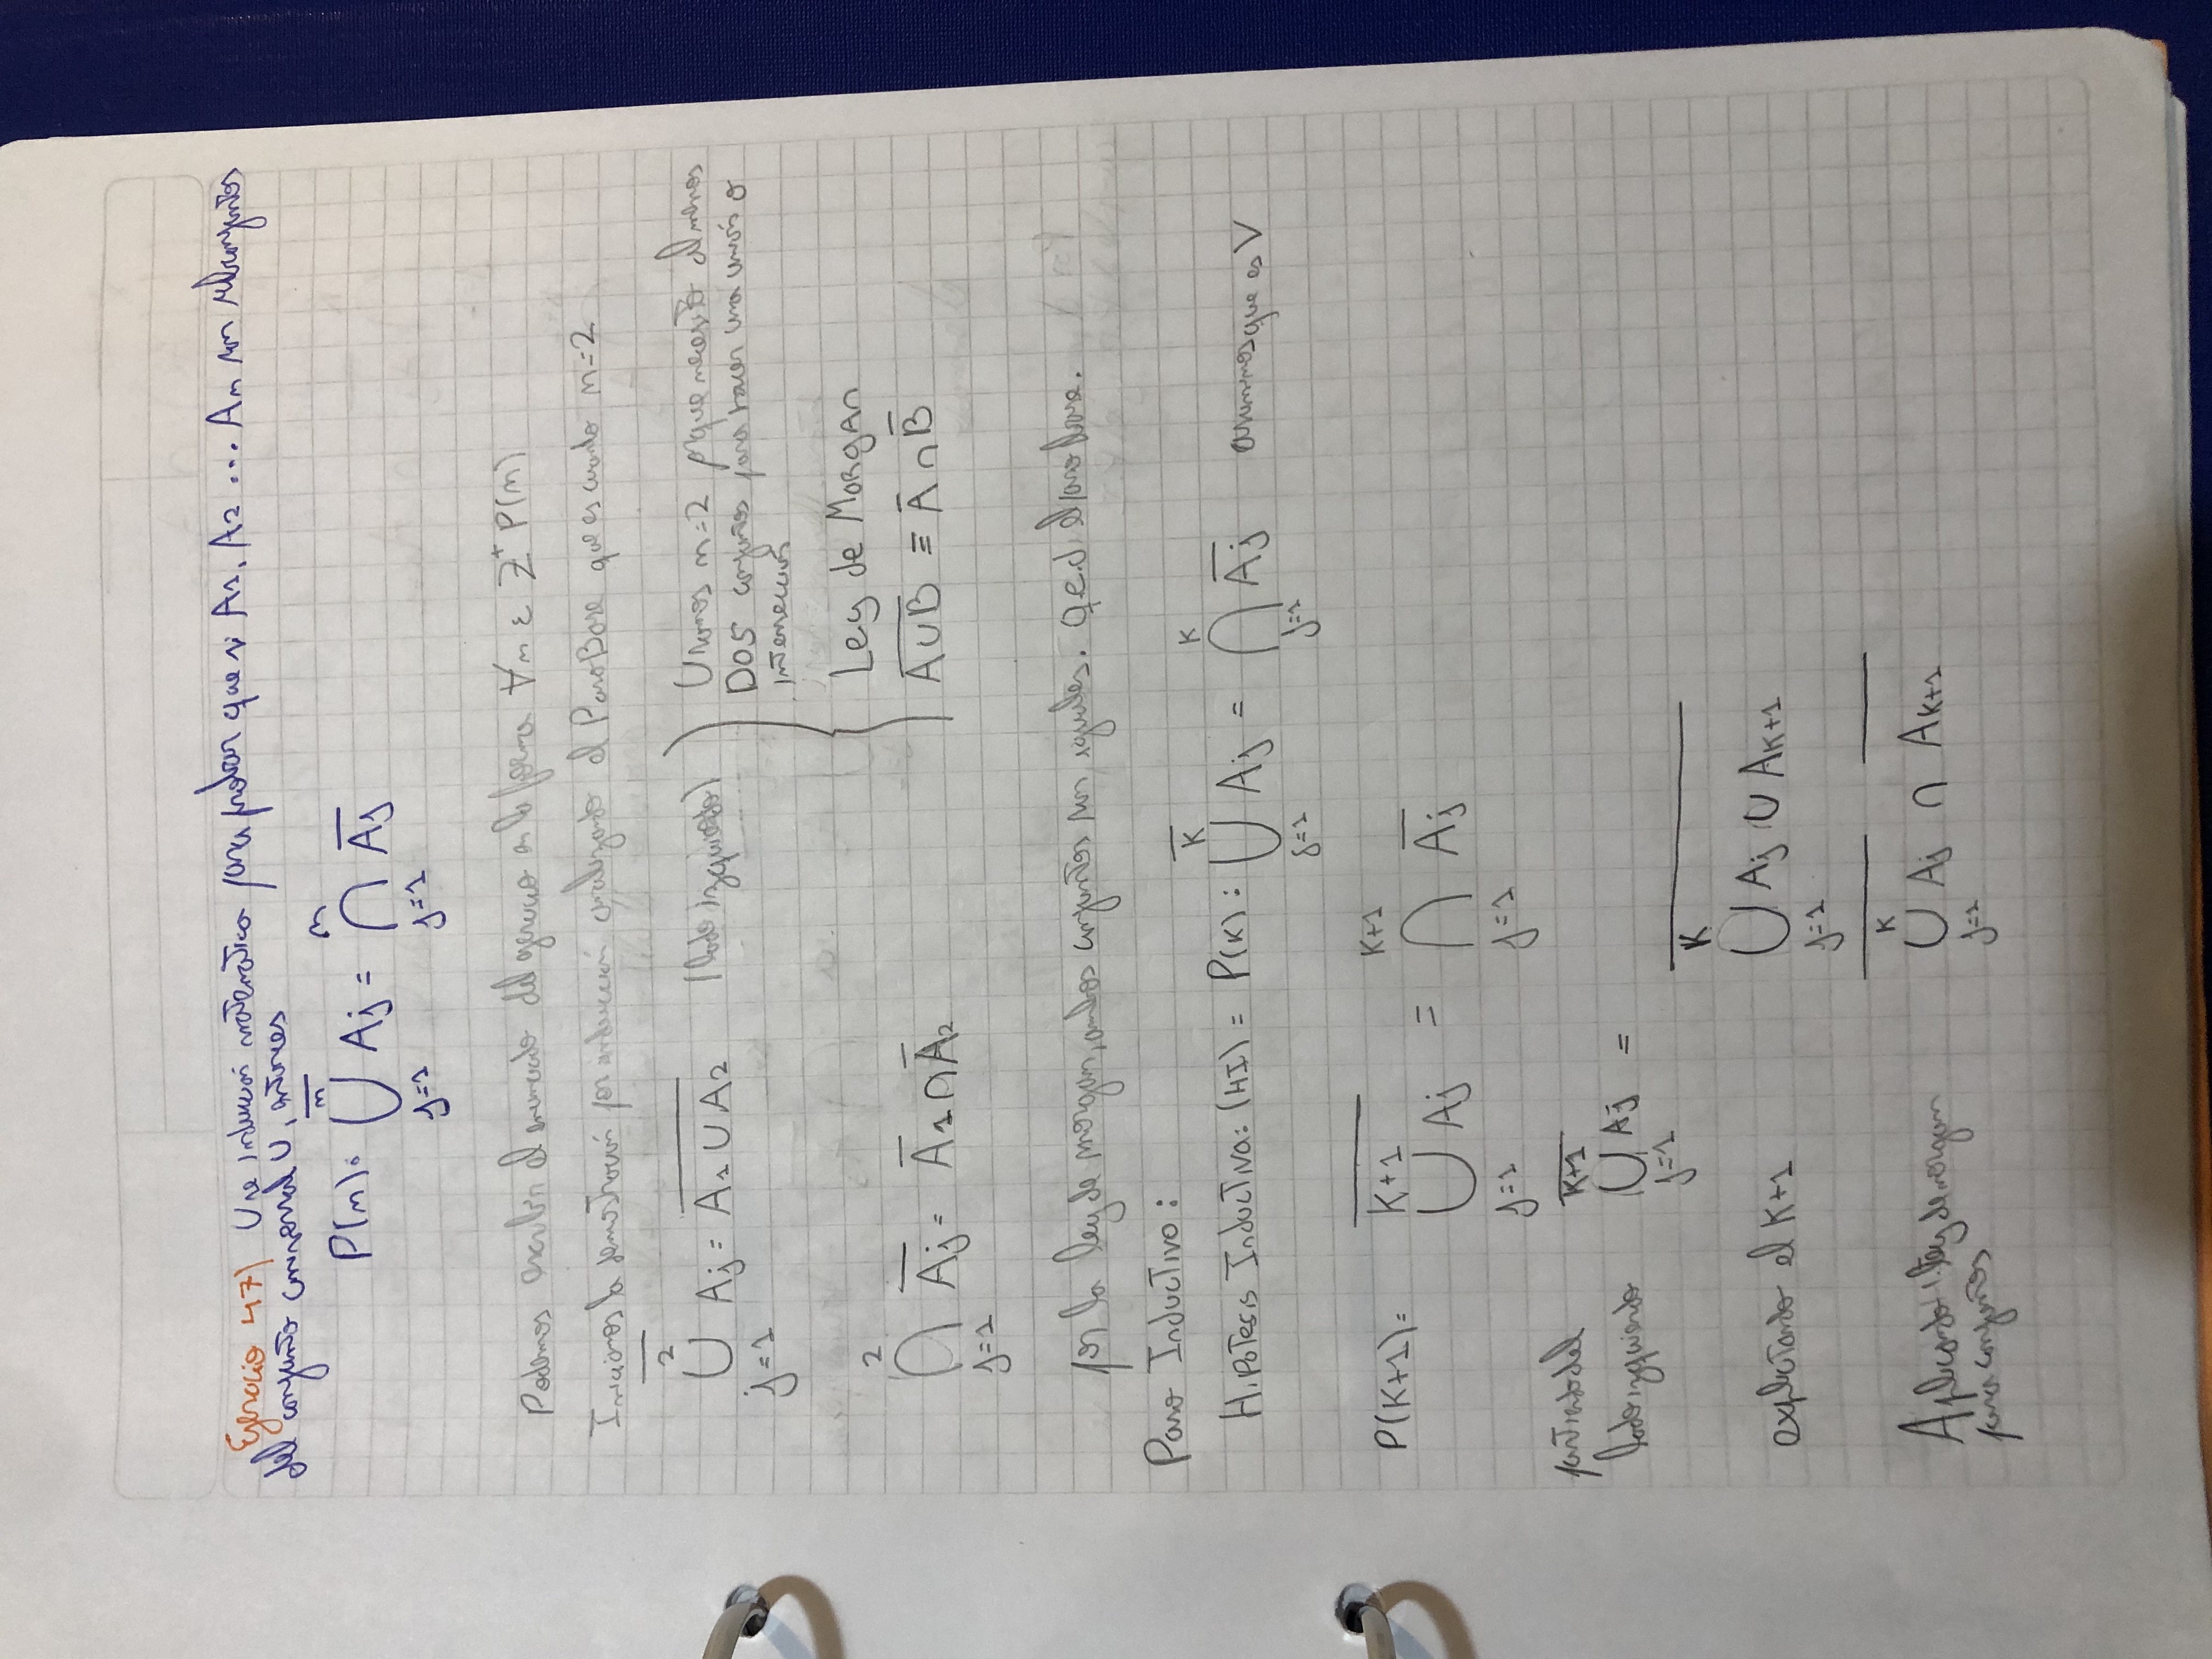 Ejercicio 47) Use inducción matemática para probar que si A1, A2 ... An son subconjuntos
del conjunto universal U, entonces
n n
P(n): ⋃ Aj = ⋂ A̅j̅
j=1 j=1
Podemos escribir el enunciado del ejercicio en la forma ∀n ε Z⁺ P(n)
Iniciamos la demostración por inducción analizando el Paso Base que es cuando n=2
2
⋃ Aj = A̅1̅ ̅U̅ ̅A̅2̅ (lado izquierdo)
j=1
Usamos n=2 porque necesito al menos
DOS conjuntos para hacer una unión o
intersección
Ley de Morgan
A̅U̅B̅ ≡ A̅ ∩ B̅
2
⋂ A̅j̅ = A̅1 ∩ A̅2
j=1
por la ley de morgan, ambos conjuntos son iguales. q.e.d el paso base.
Paso Inductivo:
K K
Hipotesis Inductiva: (HI) = P(K): ⋃ Aj = ⋂ A̅j̅ asumimos que es V
j=1 j=1
K+1 K+1
P(K+1)= ⋃ Aj = ⋂ A̅j̅
j=1 j=1
partiendo del K+1
lado izquierdo ⋃ Aj =
j=1
K
explicitando el K+1 ⋃ Aj ∪ AK+1
j=1
K
Aplicando ley de morgan ⋃ Aj ∩ AK+1
para conjuntos j=1